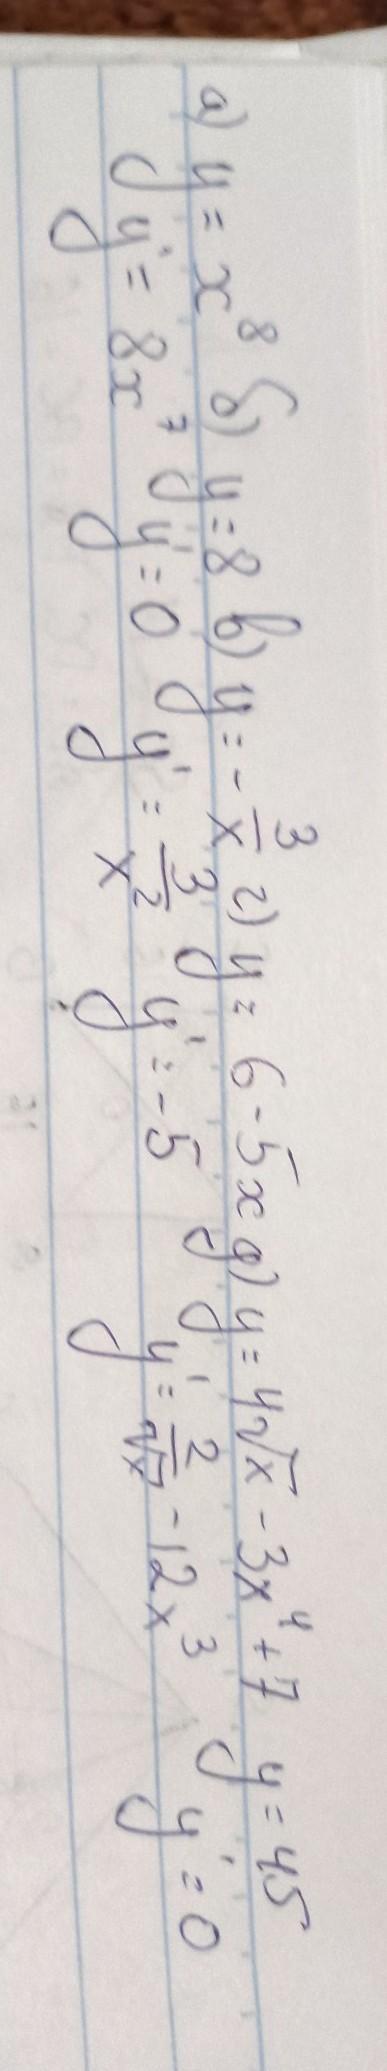 а) y = x⁸ б) y = 8 в) y = -3/x г) y = 6 - 5x д) y = 4√x - 3x⁴ + 7 y = 45
y' = 8x⁷ y' = 0 y' = 3/x² y' = -5 y' = 2/√x - 12x³ y' = 0